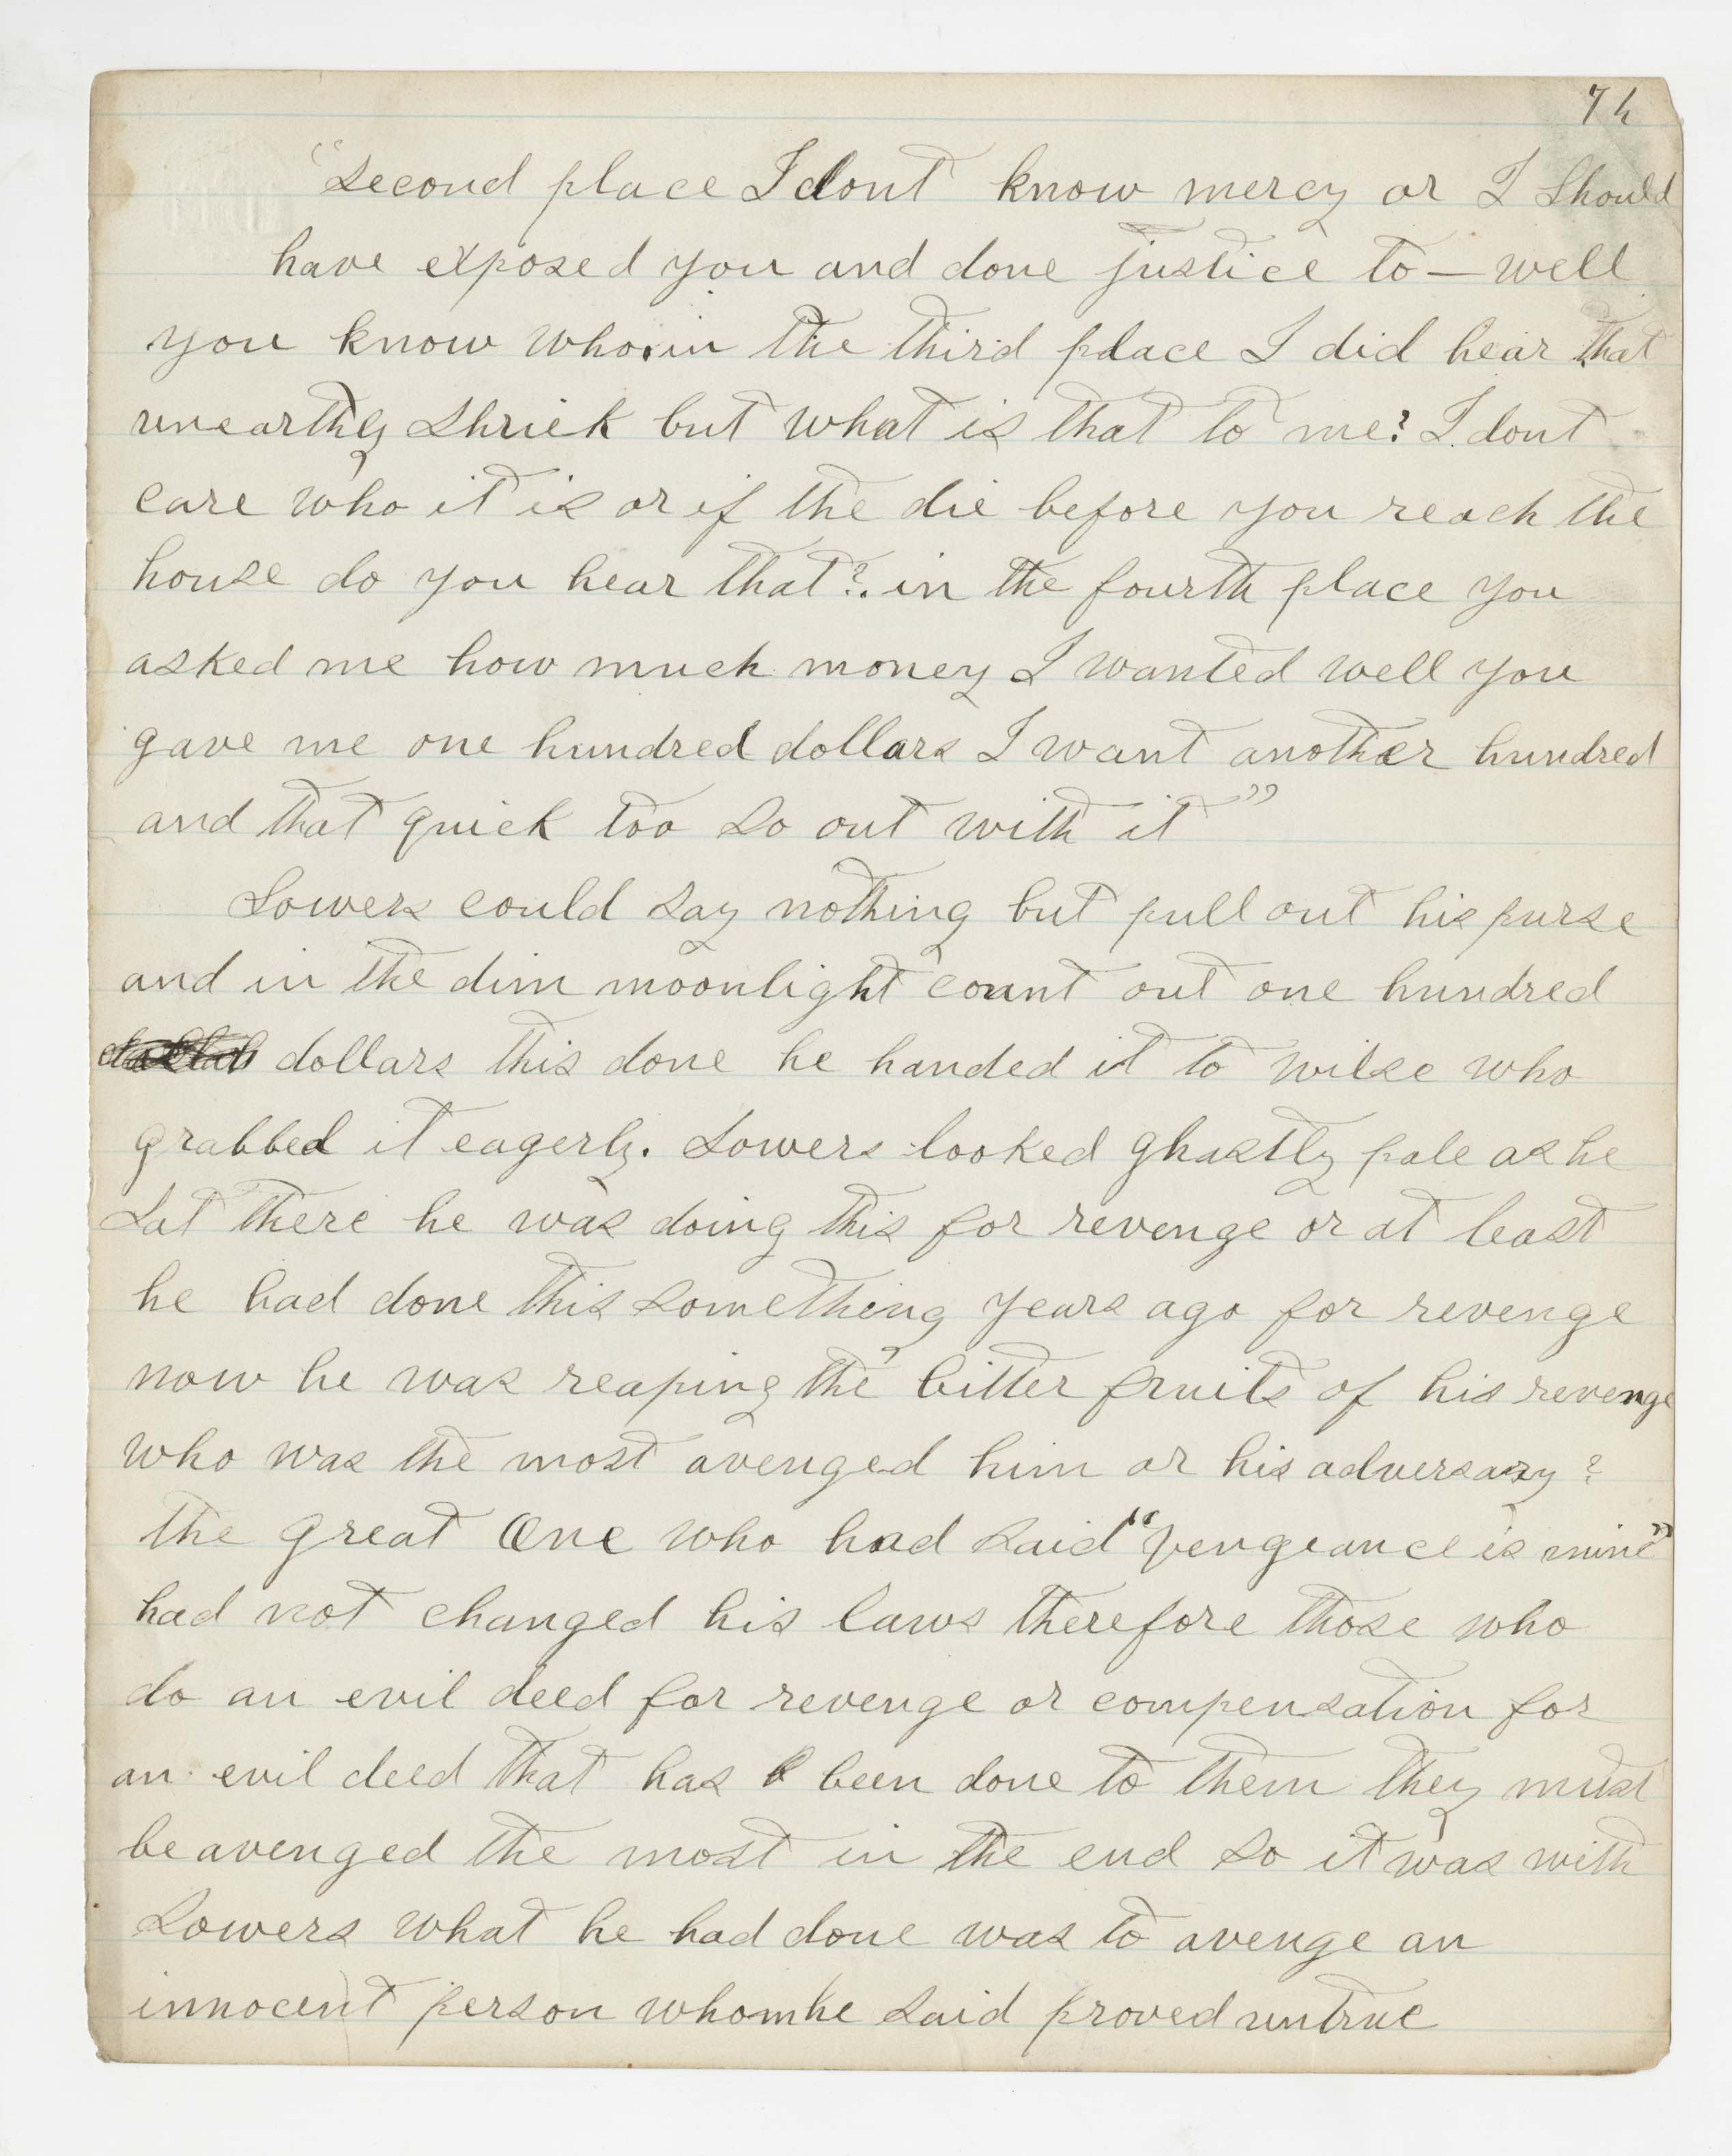 74
"second place I dont know mercy or I should
have exposed you and done justice to — well
you know who. in the third place I did hear that
unearthly shriek but what is that to me? I dont
care who it is or if the die before you reach the
house do you hear that?. in the fourth place you
asked me how much money I wanted well you
gave me one hundred dollars I want another hundred
and that quick too so out with it"
Lowers could say nothing but pull out his purse
and in the dim moonlight count out one hundred
dollars this done he handed it to wilse who
grabbed it eagerly. Lowers looked ghastly pale as he
sat there he was doing this for revenge or at least
he had done this something years ago for revenge
now he was reaping the bitter fruits of his revenge
who was the most avenged him or his adversary?
the great One who had said "vengeance is mine"
had not changed his laws therefore those who
do an evil deed for revenge or compensation for
an evil deed that has been done to them they must
be avenged the most in the end so it was with
Lowers what he had done was to avenge an
innocent person whom he said proved untrue